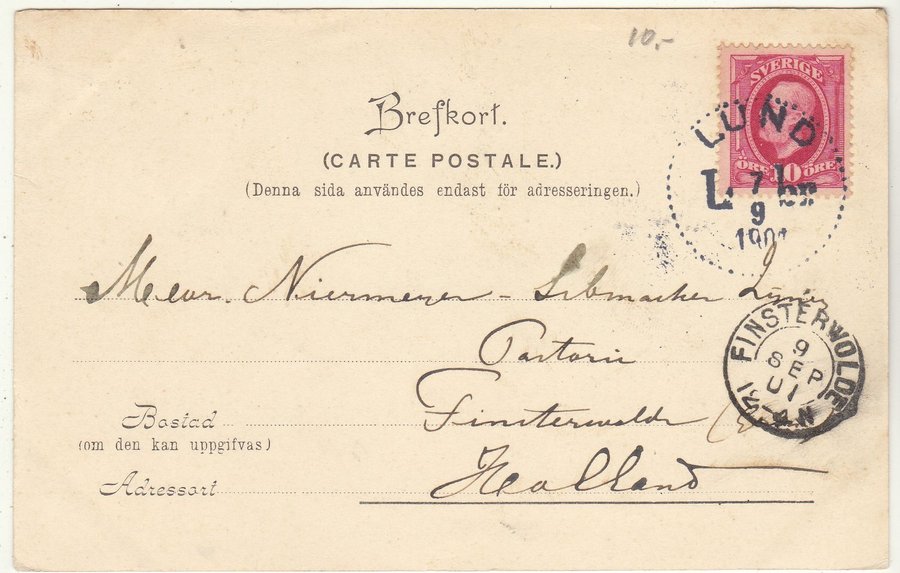 10.-
SVERIGE
ÖRE 10 ÖRE
LUND
L. br.
7
9
1901
Brefkort.
(CARTE POSTALE.)
(Denna sida användes endast för adresseringen.)
Mevr. Niermeyer -
FINSTERWOLDE
9
SEP
01
Pastorie
Finsterwolde
Bostad
(om den kan uppgifvas)
Holland
Adressort